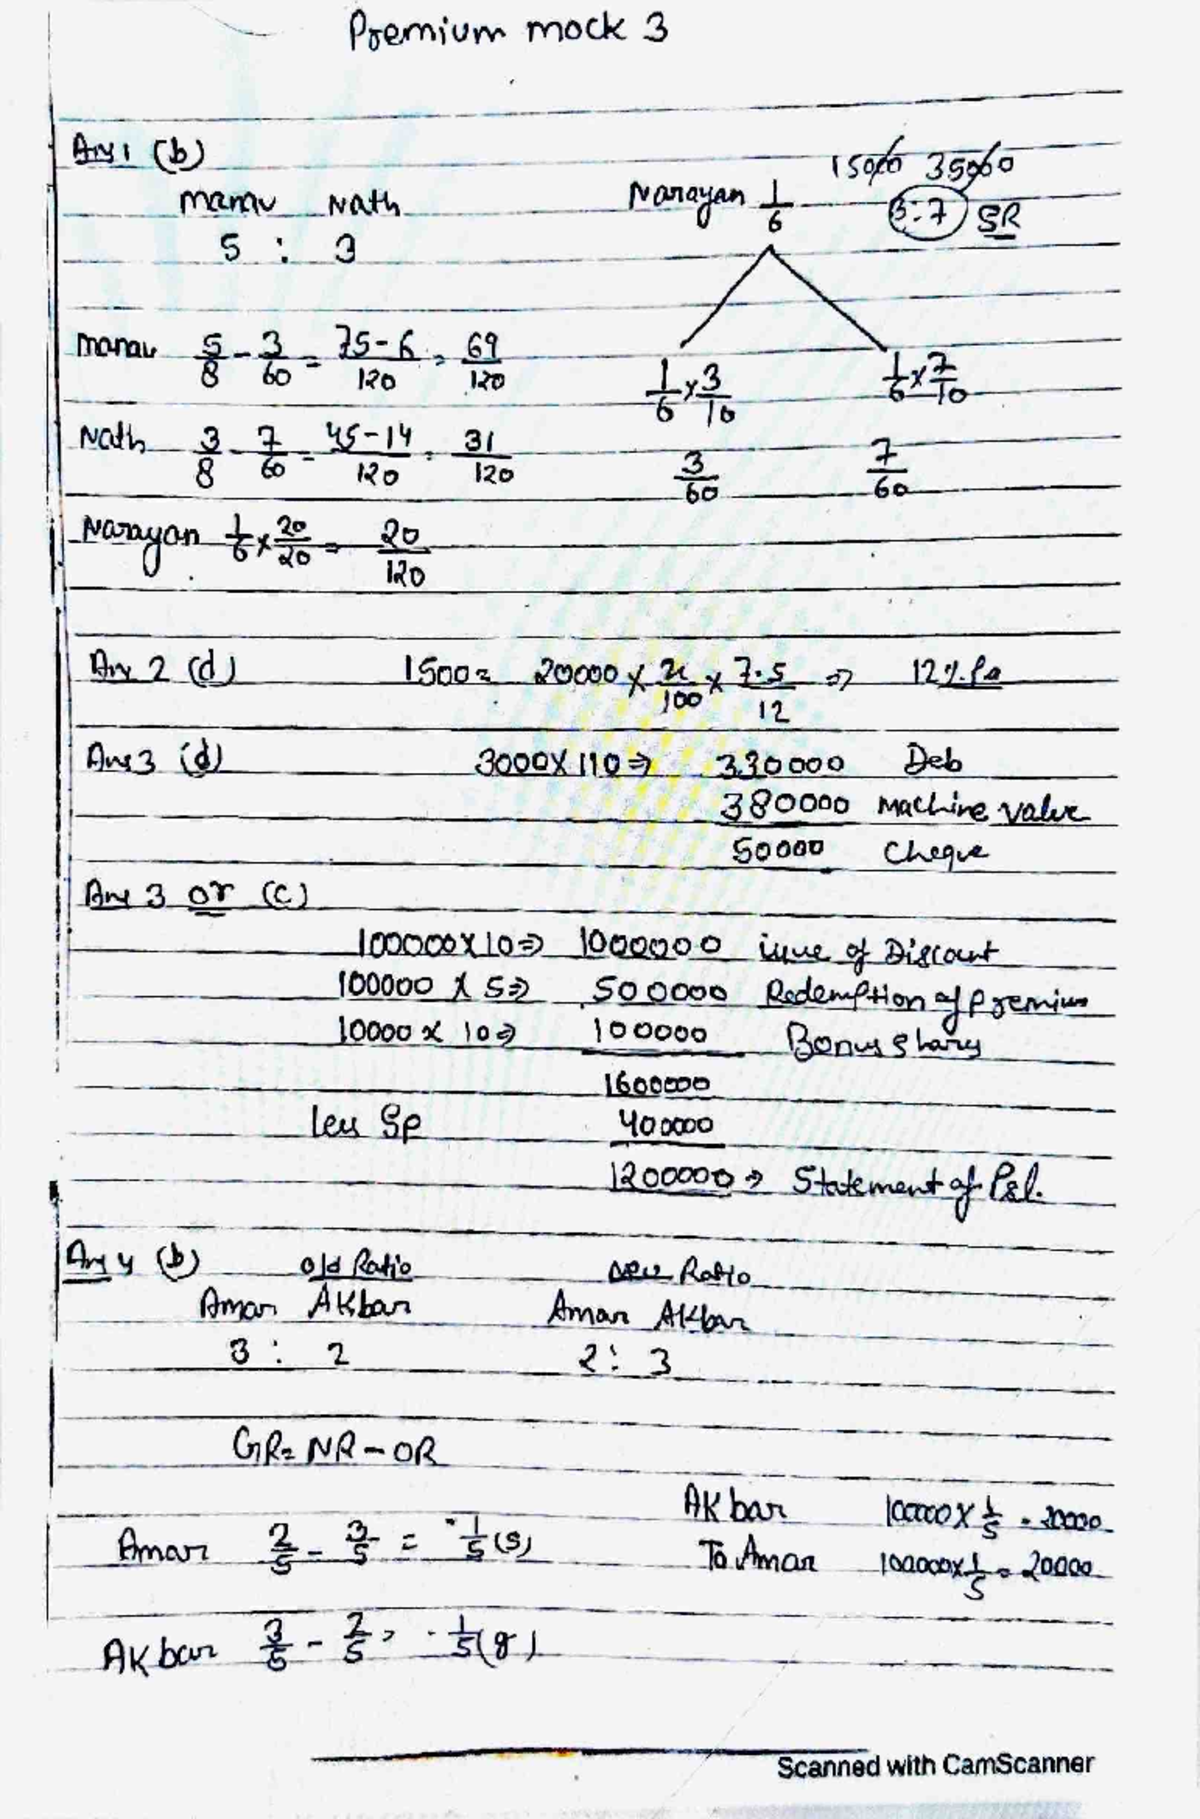 Premium mock 3
Ans 1 (b)
15000 35000
Manav Nath
Narayan 1/6
3:7 SR
5 : 3
Manav 5/8 - 3/60 = 75-6/120 = 69/120
1/6 × 3/10 1/6 × 7/10
Nath 3/8 - 7/60 = 45-14/120 = 31/120
3/60 7/60
Narayan 1/6 × 20/20 = 20/120
Ans 2 (d) 1500 = 20000 × x/100 × 7.5/12 ⇒ 12% Pa
Ans 3 (d) 3000 × 110 ⇒ 330000 Deb
380000 Machine value
50000 Cheque
Ans 3 or (c)
100000 × 10 ⇒ 1000000 issue of Discount
100000 × 5 ⇒ 500000 Redemption of premium
10000 × 10 ⇒ 100000 Bonus Shares
1600000
Less SP 400000
1200000 ⇒ Statement of P&L.
Ans 4 (b) Old Ratio New Ratio
Amar Akbar Amar Akbar
3 : 2 2 : 3
GR = NR - OR
Akbar 100000 × 1/5 = 20000
Amar 2/5 - 3/5 = -1/5 (S)
To Amar 100000 × 1/5 = 20000
Akbar 3/5 - 2/5 = 1/5 (g)
Scanned with CamScanner